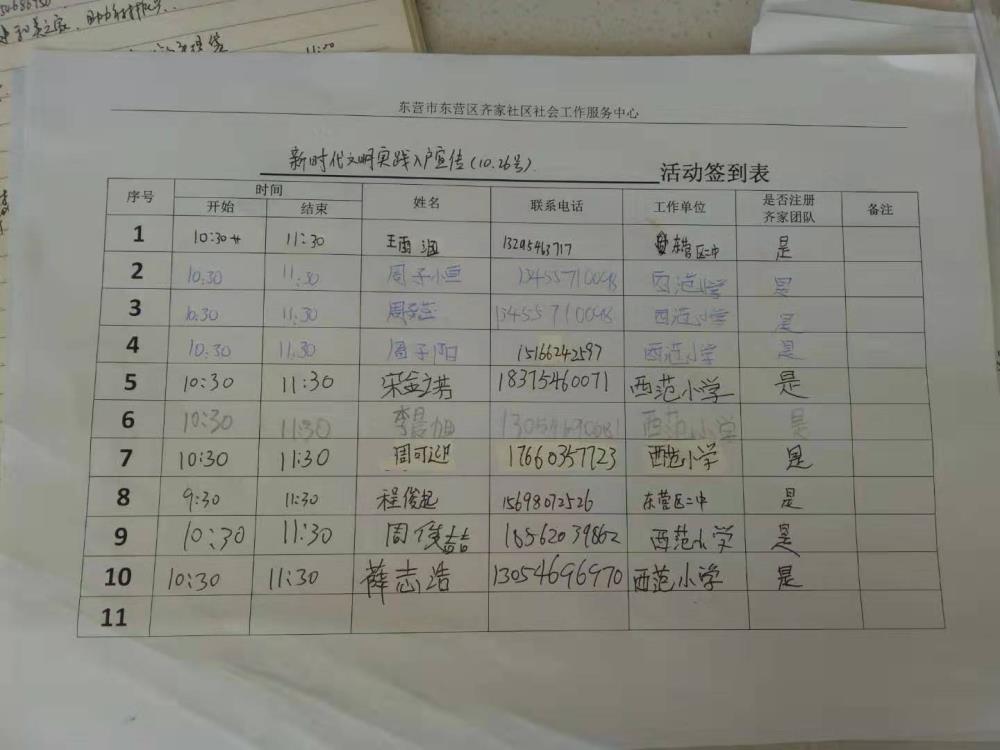 11:00
东营市东营区齐家社区社会工作服务中心
新时代文明实践入户宣传(10.26号) 活动签到表
序号 时间 姓名 联系电话 工作单位 是否注册齐家团队 备注
开始 结束
1 10:30 11:30 13295463717 东营区二中 是
2 10:30 11:30 周子小 13455710098 西范小学 是
3 10:30 11:30 周子 13455710098 西范小学 是
4 10:30 11:30 周子阳 15166242597 西范小学 是
5 10:30 11:30 宋金芳 18375460071 西范小学 是
6 10:30 11:30 李晨旭 13054690681 西范小学 是
7 10:30 11:30 周可迎 17660357723 西范小学 是
8 9:30 11:30 程俊起 15698072526 东营区二中 是
9 10:30 11:30 周俊喆 18562039862 西范小学 是
10 10:30 11:30 薛志浩 13054696970 西范小学 是
11